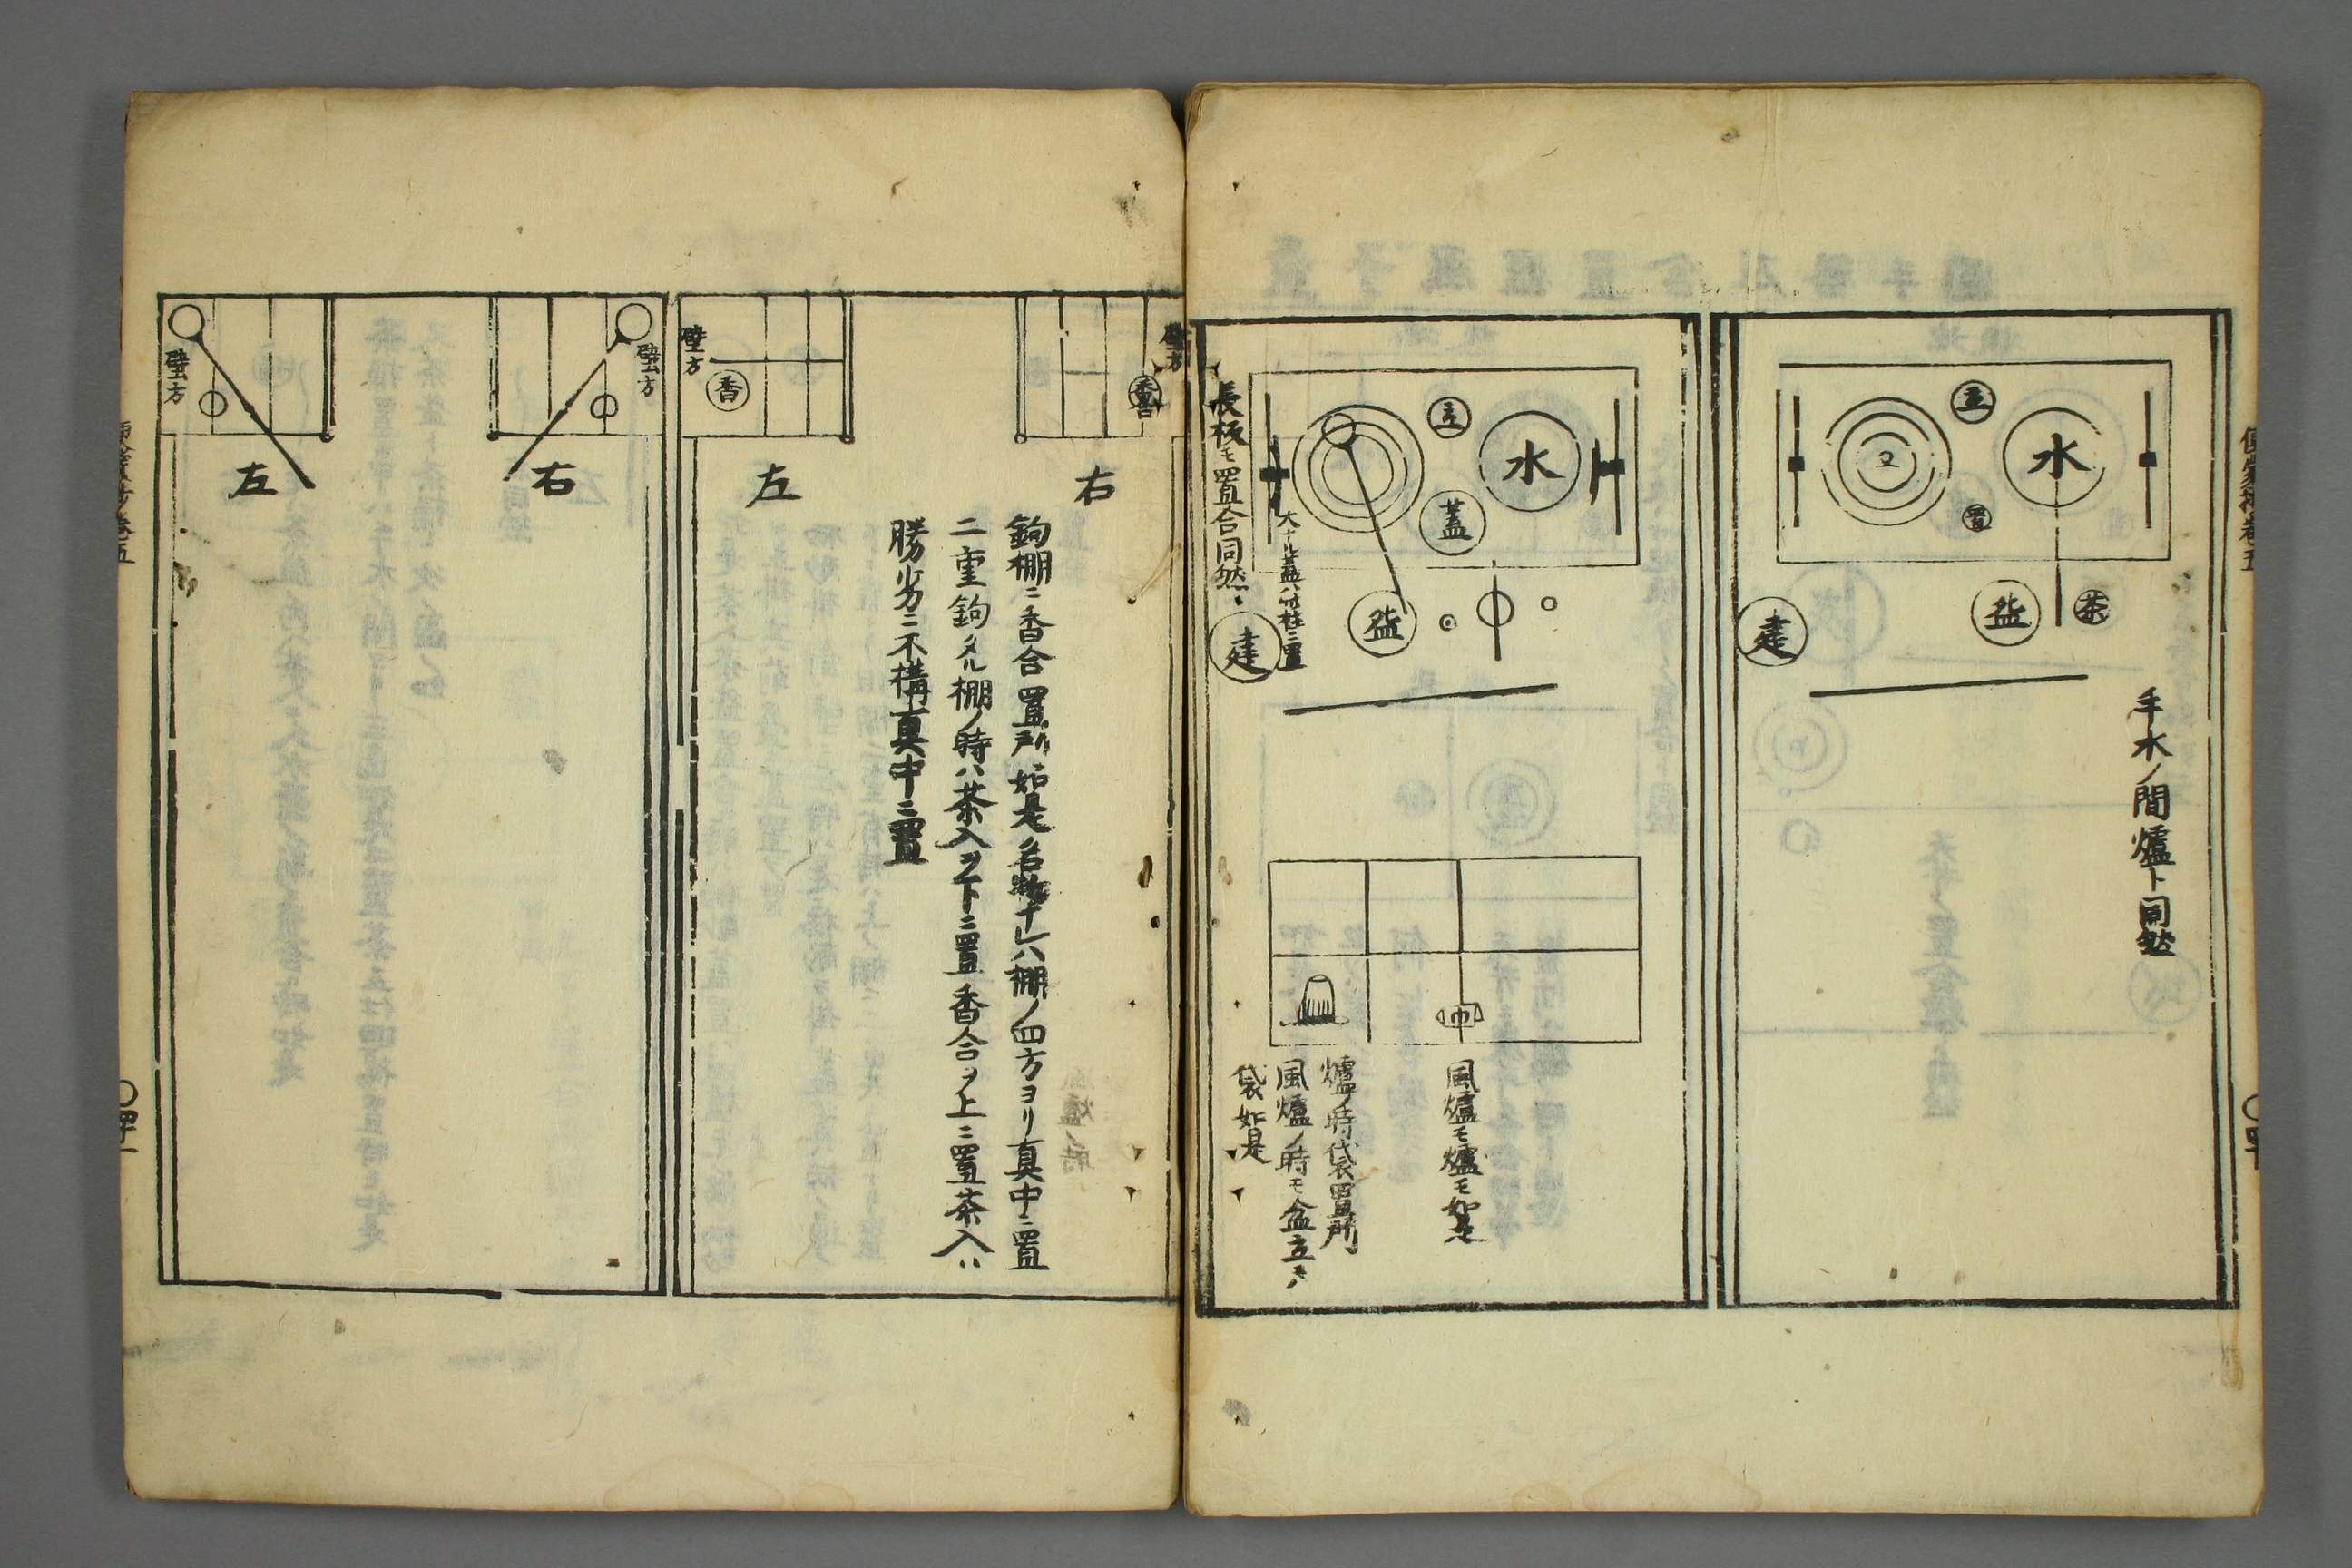 水
立
置
茶
益
建
手水ノ間爐ト同然
水
立
蓋
益
建
長板モ置合同然
大ナル蓋ハ付柱ニ置
巾
風爐モ爐モ如是
爐ノ時袋置所
風爐ノ時モ盆立キノ
袋如是
壁方
香
右
壁方
香
左
鉤棚ニ香合置所如是名物ナレハ棚ノ四方ヨリ真中ニ置
二重鉤タル棚ノ時ハ茶入ヲ下ニ置香合ヲ上ニ置茶入ハ
勝劣ニ不構真中ニ置
壁方
右
壁方
左